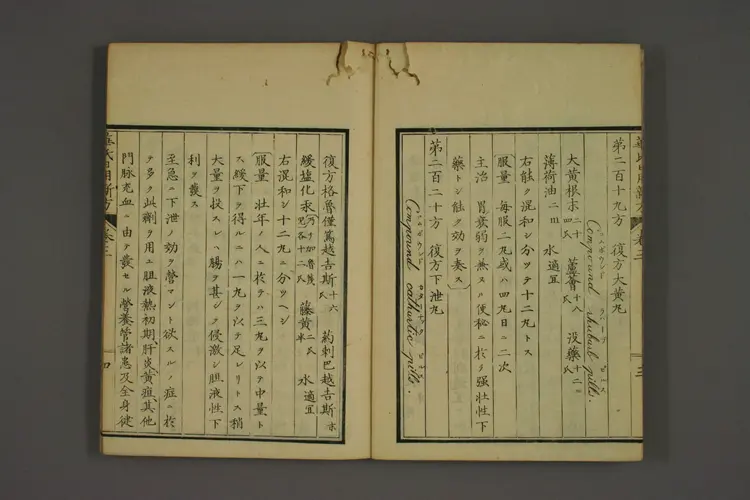 第二百十九方 復方大黄丸
Compound rhubarb pills.
大黄根末二十氏 蘆薈十八氏 没薬十二氏
薄荷油二皿 水適宜
右能ク混和シ分ツテ十二丸トス
服量 毎服二丸或ハ四丸日ニ二次
主治 胃衰弱ヲ兼ヌル便秘ニ於テ强壮性下
藥トシ能ク効ヲ奏ス
第二百二十方 復方下泄丸
Compound cathartic pills.
復方格魯僅篤越幾斯十六氏 葯剌巴越幾斯末
緩塩化汞 各十二氏 籐黄二氏半 水適宜
右混和シ十二丸ニ分ツヘシ
服量 壮年ノ人ニ於テハ三丸ヲ以テ中量ト
ス緩下ヲ得ルニハ一丸ヲ以テ足レリトス稍
大量ヲ投スレハ腸ヲ甚シク侵激シ胆液性下
利ヲ發ス
至急ニ下泄ノ効ヲ營マント欲スルノ症ニ於
テ多ク此劑ヲ用ユ胆液熱初期、肝炎、黄疸、其他
門脉充血ニ由テ發セル營養管諸患及全身徤
華氏日用新方 巻二
四
三